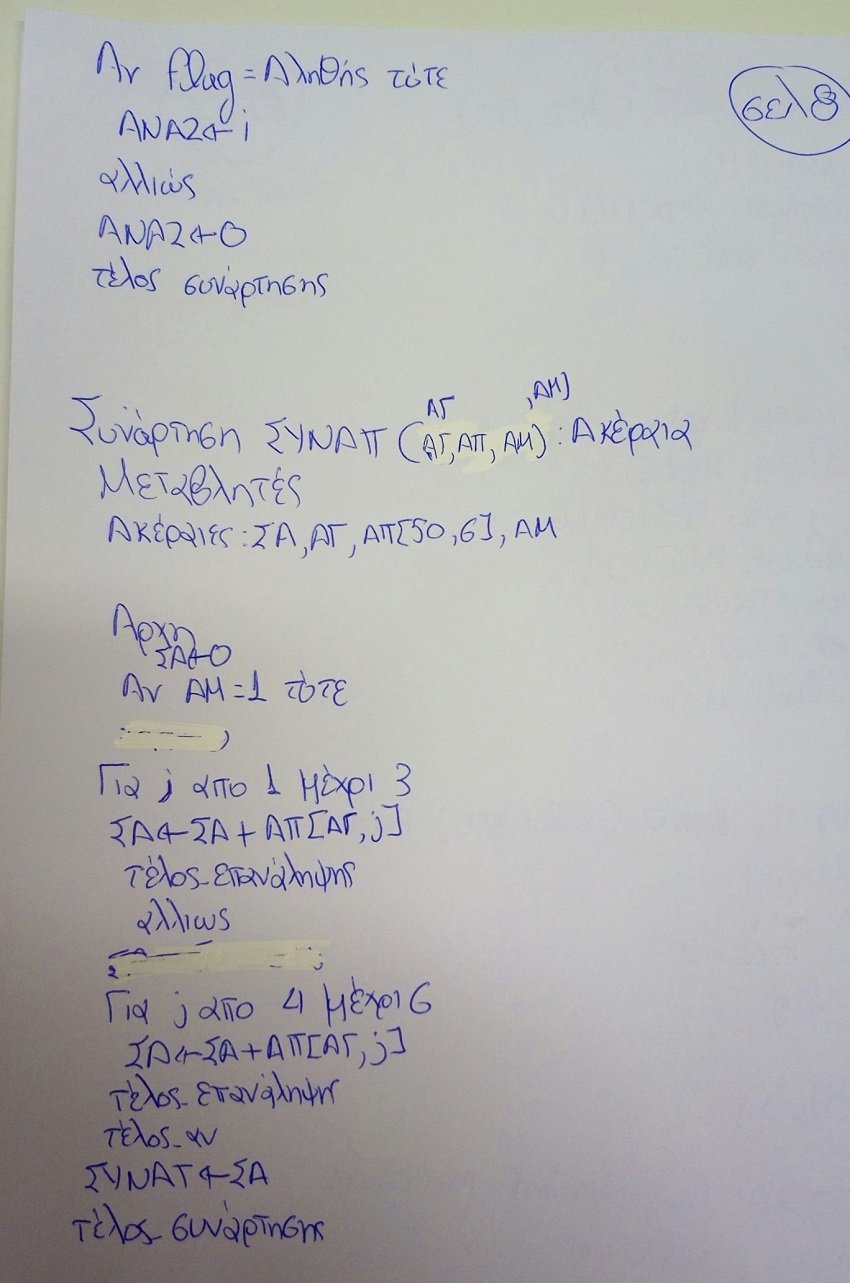 σελ 8
Αν flag = Αληθής τότε
ΑΝΑΖ ← i
αλλιώς
ΑΝΑΖ ← 0
τέλος συνάρτησης
ΑΓ , ΑΜ)
Συνάρτηση ΣΥΝΑΠ (ΑΓ, ΑΠ, ΑΜ) : Ακέραια
Μεταβλητές
Ακέραιες : ΣΑ, ΑΓ, ΑΠ[50, 6], ΑΜ
Αρχη
ΣΑ ← 0
Αν ΑΜ = 1 τότε
Για j απο 1 μέχρι 3
ΣΑ ← ΣΑ + ΑΠ[ΑΓ, j]
τέλος_επανάληψης
αλλιως
Για j απο 4 μέχρι 6
ΣΑ ← ΣΑ + ΑΠ[ΑΓ, j]
τέλος_επανάληψης
τέλος_αν
ΣΥΝΑΤ ← ΣΑ
τέλος_συνάρτησης